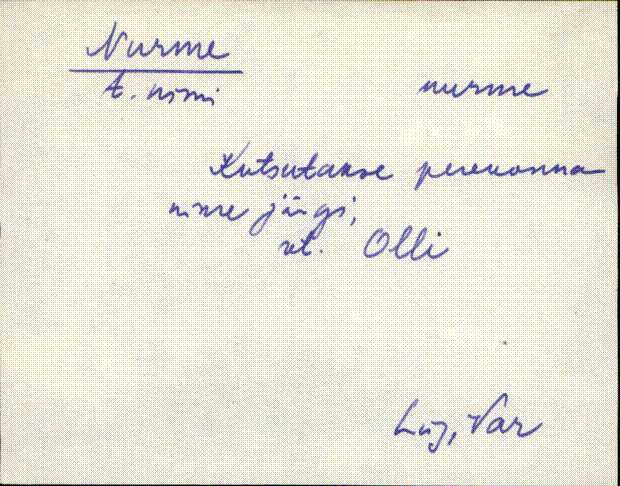 Nurme
t. nimi nurme
Kutsutakse perekonna
nime järgi,
vt. Olli
Lüg, Var